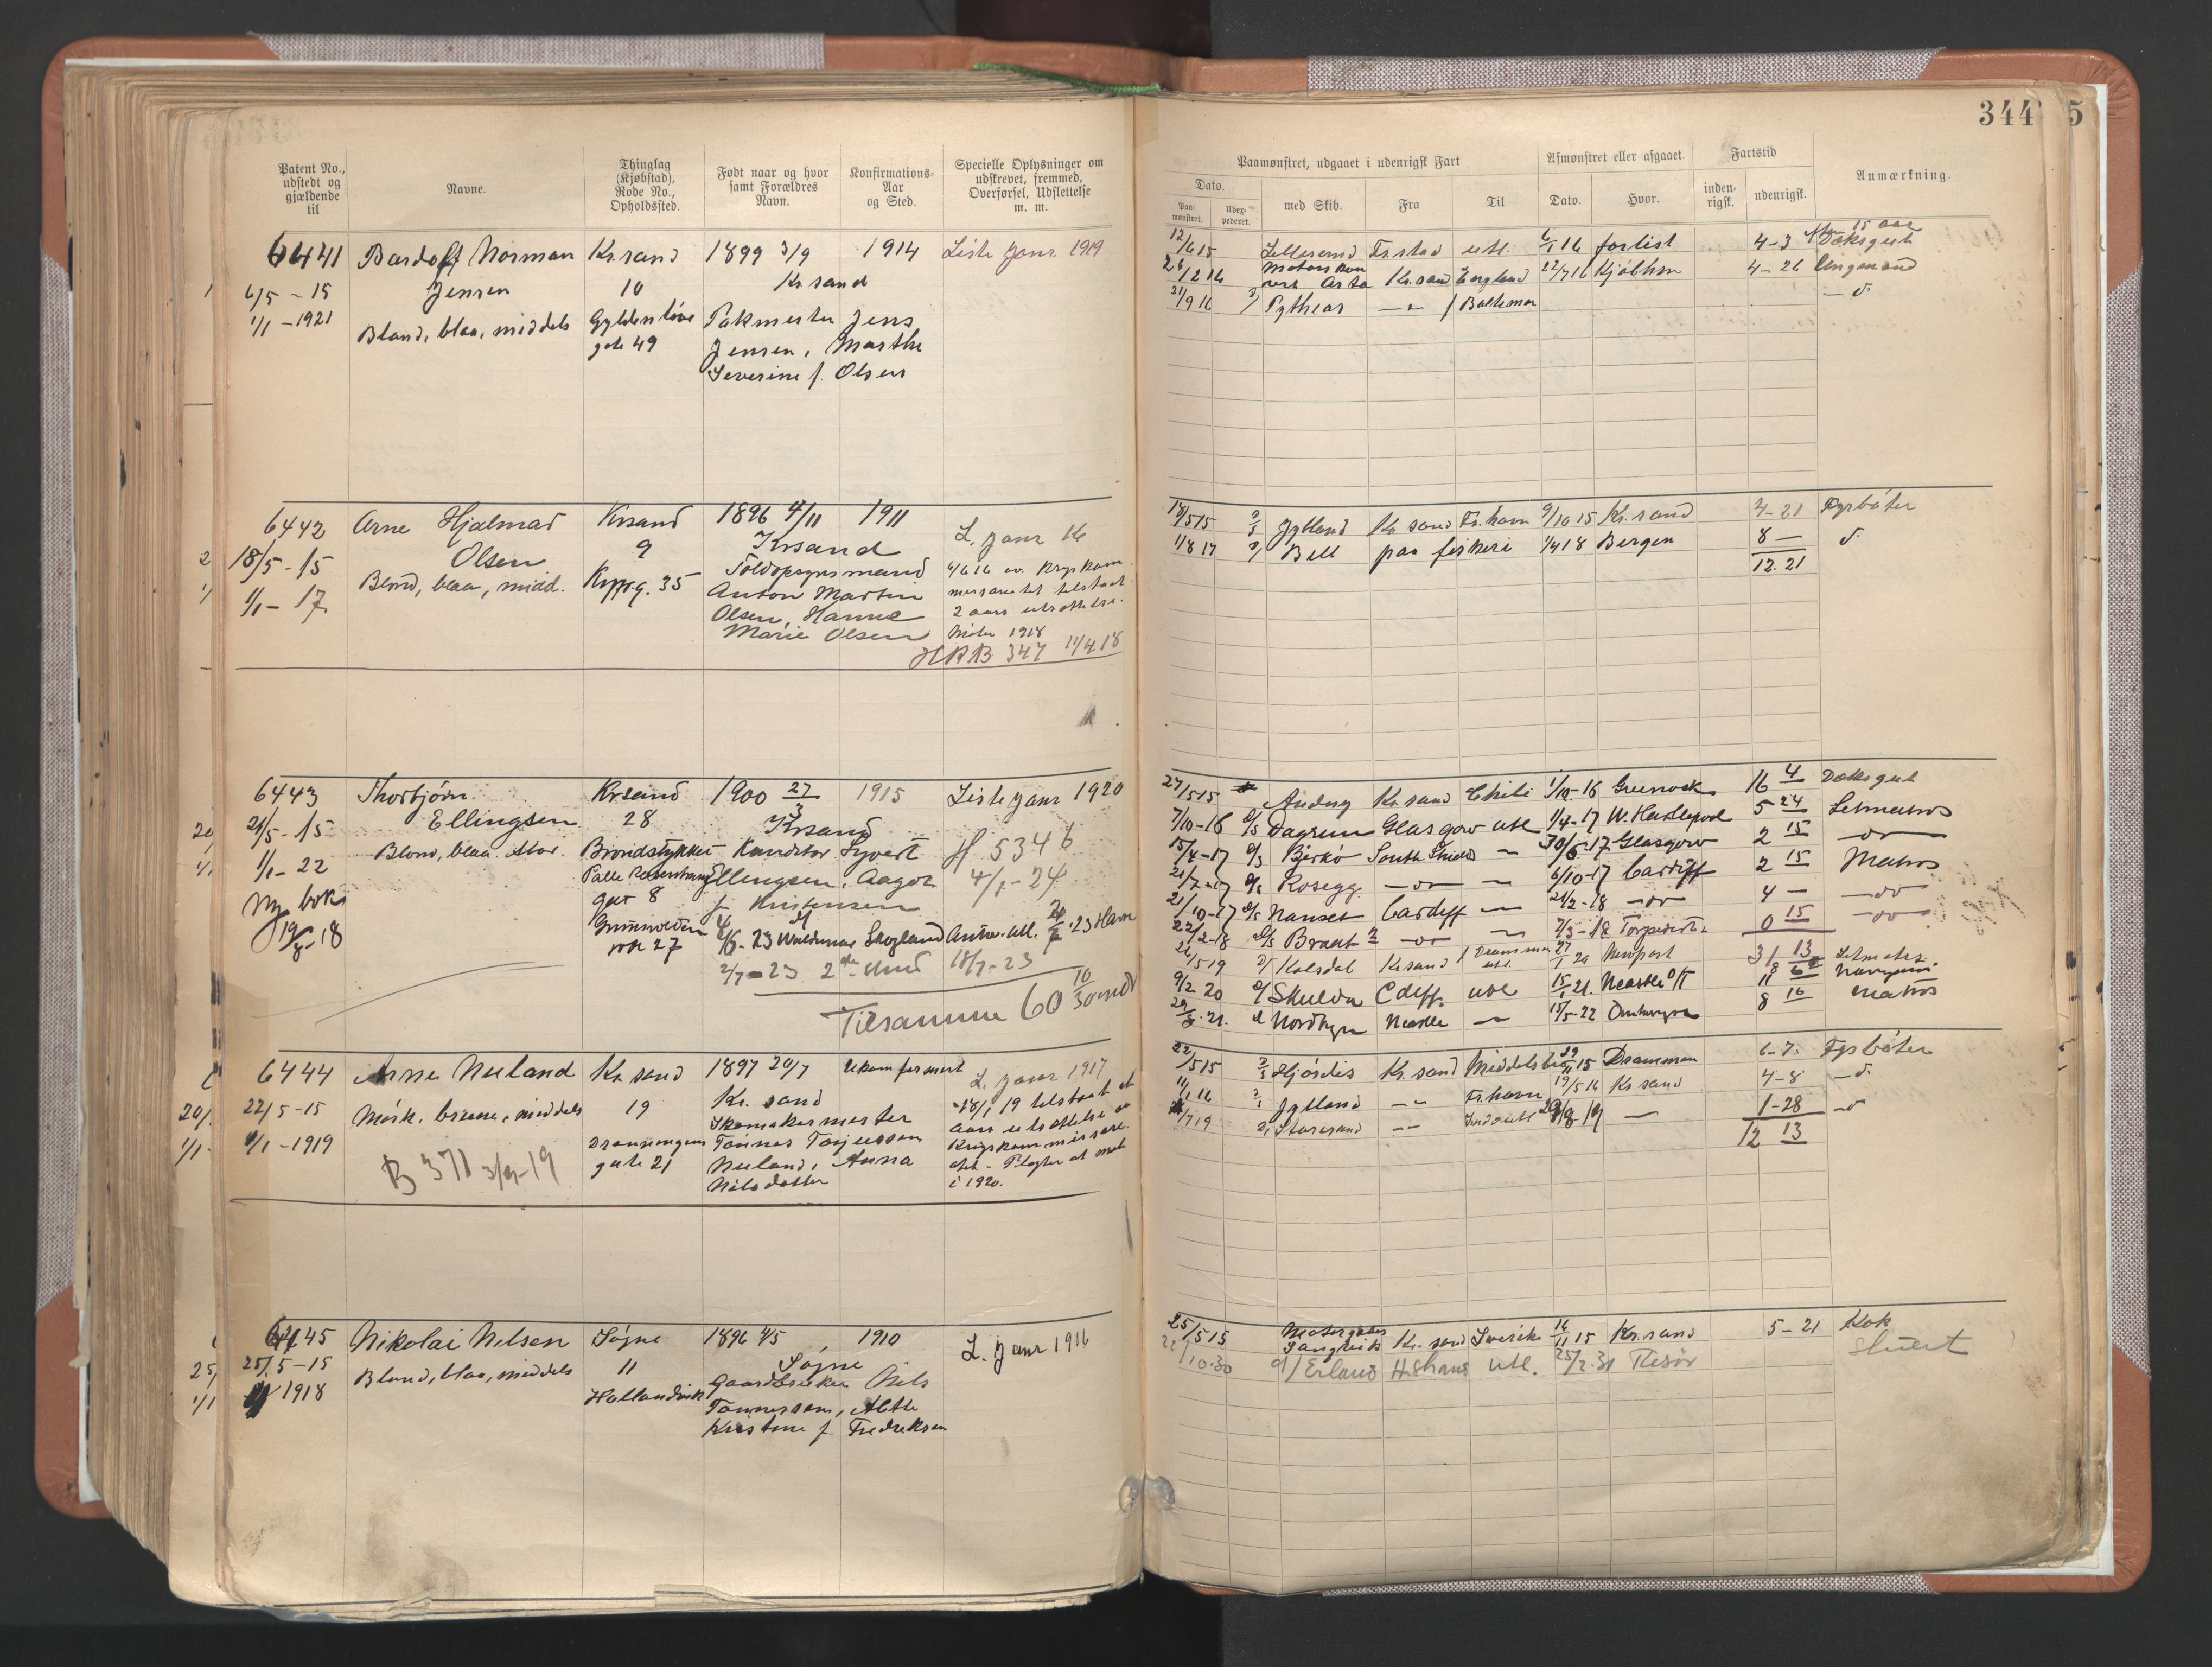 344
5
Patent No., udstedt og gjældende til
Navne.
Thinglag (Kjøbstad), Rode No., Opholdssted.
Født naar og hvor samt Forældres Navn.
Konfirmations-Aar og Sted.
Specielle Oplysninger om udskrevet, fremmed, Overførsel, Udslettelse m. m.
Paamønstret, udgaaet i udenrigsk Fart
Afmønstret eller afgaaet.
Fartstid
Anmærkning.
Dato.
Paa-mønstret.
med Skib.
Fra
Til
Dato.
Hvor.
inden-rigsk.
udenrigsk.
6441
6/5 - 15
1/1 - 1921
Bardolf Norman
Jensen
Blond, blaa, middels
Kr.sand
10
Gyldenløve
gate 49
1899 3/9
Kr sand
Takmester Jens
Jensen, Marthe
Severine f. Olsen
1914
Liste Janr 1919
12/6 15 Fr.stad utl. 6/1 16 forlist 4-3 Dæksgut
15 aar
Kr.sand England 22/7 16 Kjøbhvn 4-26 Ungmand
21/9 16 Pytheas
6442
18/5 - 15
1/1 - 17
Arne Hjalmar
Olsen
Blond, blaa, midd.
Krsand
9
Kypg. 35
1896 4/11
Krsand
Toldopsynsmand
Anton Martin
Olsen, Hanne
Marie Olsen
1911
L. Janr 16
6/6 16 av Krigskom
missariatet tilstaat
2 aars utsættelse.
Møter 1918
HRB 347 11/4 18
18/5 15 Jylland Kr sand Fr.havn 9/10 15 Kr.sand 4-21 Fyrbøter
1/8 17 Bell paa fiskeri 1/4 18 Bergen 8 —
12.21
6443
21/5 - 15
1/1 - 22
Ny bok
19/8 - 18
Thorbjørn
Ellingsen
Blond, blaa. Stor.
Krsand
28
Brondstykket
Palle Rosenkrantz
gar 8
Grimsveien
vei 27
1900 27/3
Krsand
Konditor Syvert
Ellingsen, Aagot
f. Kristensen
1915
Liste Janr 1920
H 5346
4/1 - 24
Waldemar Skogland Antw. utl. 23 Havre
2/7 - 23 2den Mand 18/7 - 23
Tilsamme 60 10/30 mndr
27/5 15 Audny Kr.sand Chile 1/10-16 Greenock 16 4 Dæksgut
7/10-16 D/S Dagrun Glasgow utl 1/4-17 W. Hartlepool 5 24 Letmatros
15/4-17 D/S Bjerkø South Shields — 30/6-17 Glasgow 2 15
21/7-17 Rosegg — 6/10-17 Cardiff 2 15 Matros
21/10-17 D/S Nanset Cardiff — 21/2-18 4 —
22/2-18 D/S Braat 2 — 7/3-18 Torpedert 0 15
31 13
26/5 19 Kolsdal Kr.sand Drammen utl. 27/1 20 Newport Letmatros
9/2 20 Skulda Cdiff utl 15/1 21. Ncastle O/T 11 6
Nordhyn Ncastle — 15/5-22 8 16 Matros
6444
22/5 - 15
1/1 - 1919
Arne Neland
Mørk, brune, middels
B 371 3/9-19
Kr sand
19
Dronningens
gate 21
1897 20/7
Kr. sand
Skomakermester
Tønnes Torjussen
Neland, Anna
Nilsdatter
Ukonfirmert
L. Janr 1917
18/1 19 tilstaat et
aars utsættelse av
Krigskommissari
atet - Plagter at møte
i 1920.
22/5 15 Hjørdis Kr sand Middelsbro 15 Drammen 6-7. Fyrbøter
11/1 16 Jylland Fr.havn 19/5 16 Kr sand 4-8
Storesand 1-28
12 13
6445
25/5 - 15
1/1 1918
Nikolai Nilsen
Blond, blaa, middels
Søgne
11
Hallandvik
1896 4/5
Søgne
Gaardbruker Nils
Tønnessen, Alette
Kristine f. Fredriksen
1910
L. Janr 1916
25/5 15 Kr. sand Sverike 16/11 15 Kr.sand 5-21 Kok
22/10.30 Erland H.Shans utl. 25/2.31 Risør Stuert